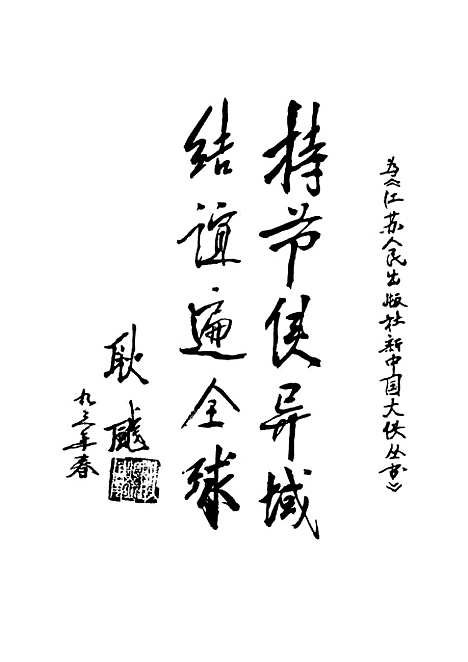 为《江苏人民出版社新中国大使丛书》
持节使异域
结谊遍全球
耿飚
九三年春